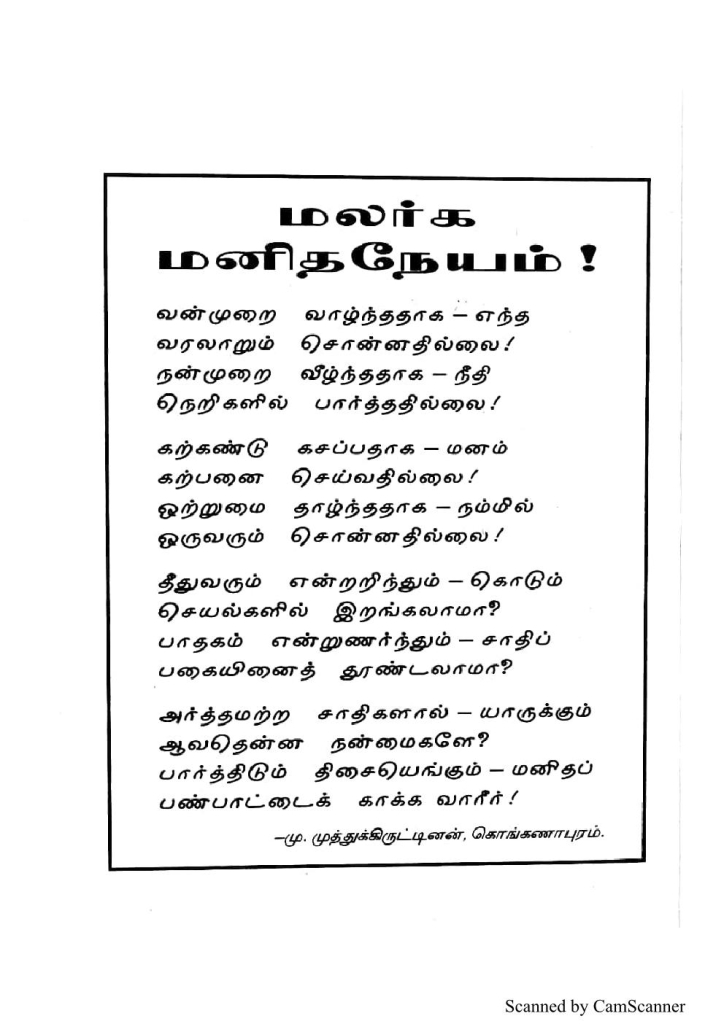 மலர்க
மனிதநேயம் !
வன்முறை வாழ்ந்ததாக – எந்த
வரலாறும் சொன்னதில்லை!
நன்முறை வீழ்ந்ததாக – நீதி
நெறிகளில் பார்த்ததில்லை!
கற்கண்டு கசப்பதாக – மனம்
கற்பனை செய்வதில்லை!
ஒற்றுமை தாழ்ந்ததாக – நம்மில்
ஒருவரும் சொன்னதில்லை!
தீதுவரும் என்றறிந்தும் – கொடும்
செயல்களில் இறங்கலாமா?
பாதகம் என்றுணர்ந்தும் – சாதிப்
பகையினைத் தூண்டலாமா?
அர்த்தமற்ற சாதிகளால் – யாருக்கும்
ஆவதென்ன நன்மைகளே?
பார்த்திடும் திசையெங்கும் – மனிதப்
பண்பாட்டைக் காக்க வாரீர்!
–மு. முத்துக்கிருட்டினன், கொங்கணாபுரம்.
Scanned by CamScanner